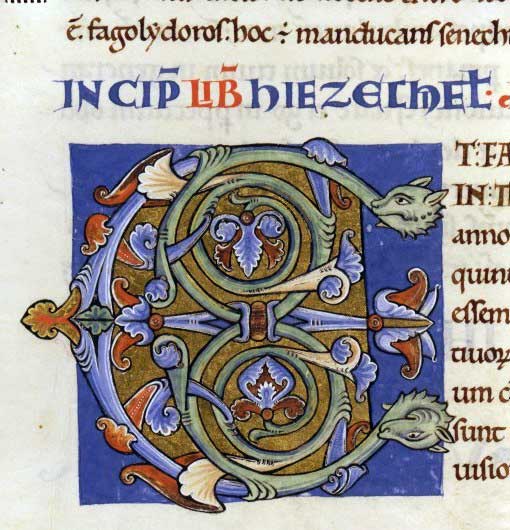 ē. fagolydoros: hoc ÷ manducans senech
INCIP̄ LIB̄ HIEZECHIEL·
E
T: FA
IN: T
anno
quint
essem
tiuor
um c
sunt
uisio